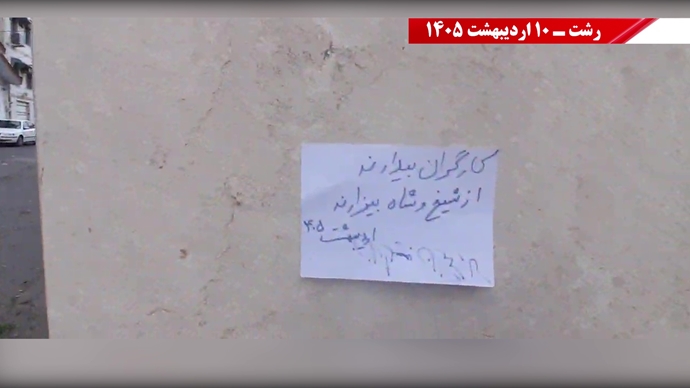 رشت ـ ۱۰ اردیبهشت ۱۴۰۵
کارگران بیدارند
از شیخ و شاه بیزارند
اردیبهشت ۴۰۵